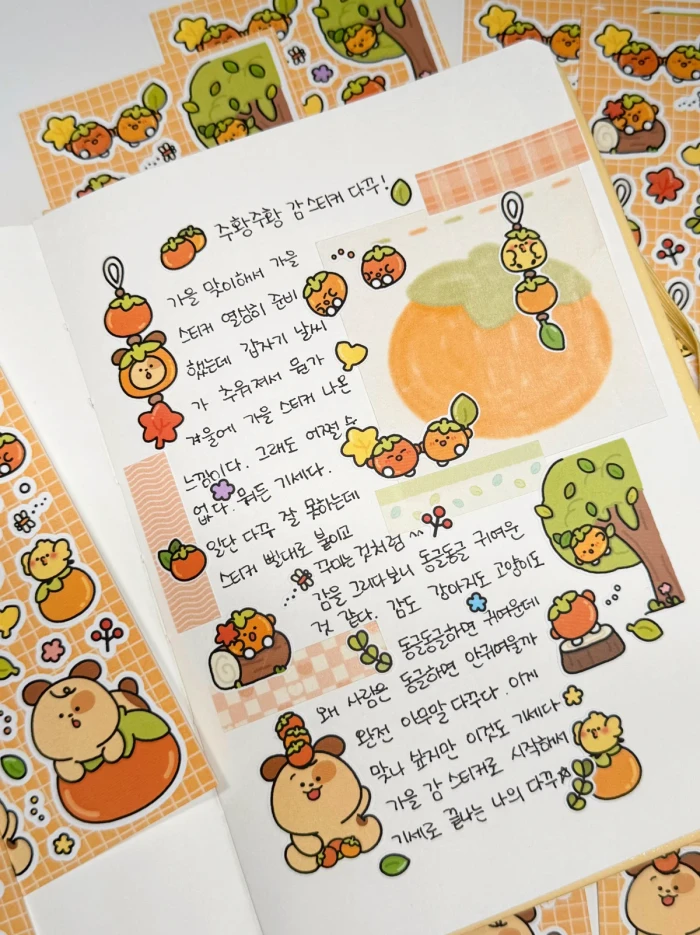 주황주황 감 스티커 다꾸!
가을 맞이해서 가을
스티커 열심히 준비
했는데 갑자기 날씨
가 추워져서 뭔가
겨울에 가을 스티커 나온
느낌이다. 그래도 어쩔 수
없다. 뭐든 기세다.
일단 다꾸 잘 못하는데
스티커 빨대로 붙이고
꾸미는 것처럼 ^^
감을 그리다보니 동글동글 귀여운
것 같다. 감도 강아지도 고양이도
동글동글하면 귀여운데
왜 사람은 동글하면 안귀여울까
완전 아무말 다꾸다. 이게
맞나 싶지만 이것도 기세다
가을 감 스티커로 시작해서
기세로 끝나는 나의 다꾸